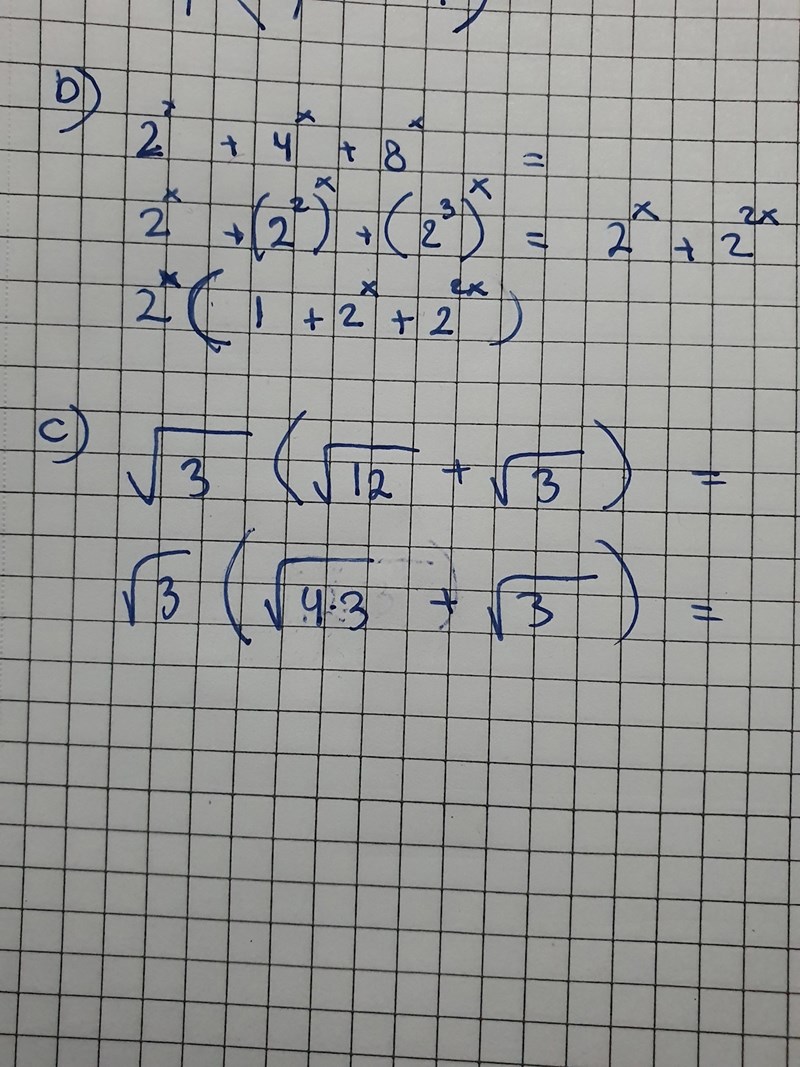 b)
2^x + 4^x + 8^x =
2^x + (2^2)^x + (2^3)^x = 2^x + 2^{2x}
2^x ( 1 + 2^x + 2^{2x} )
c) √3 ( √12 + √3 ) =
√3 ( √4·3 + √3 ) =